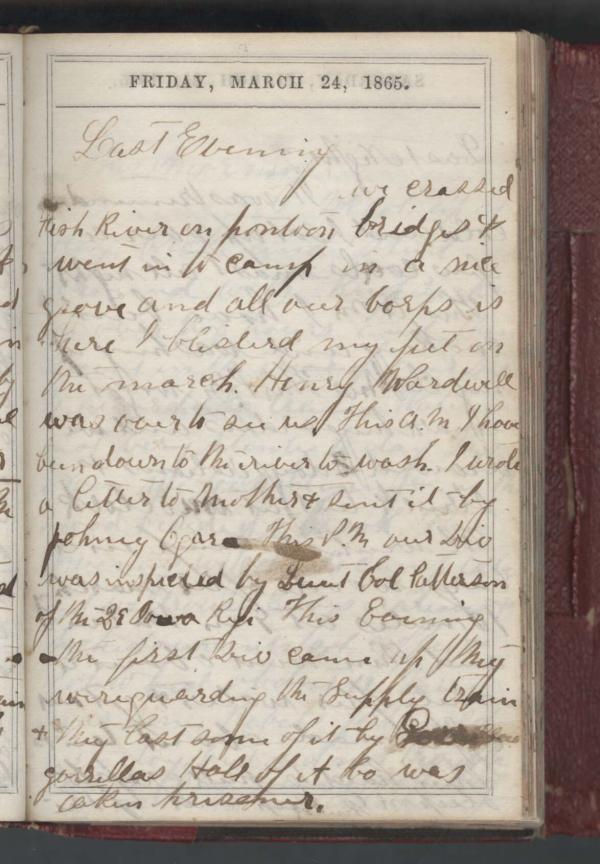 FRIDAY, MARCH 24, 1865.
Last Evening
we crassed
Fish River on pontoon bridges &
went in to camp in a nice
grove and all our corps is
here I blisterd my feet on
the march. Henry Wardwell
was over to see us This A.M I have
been down to the river to wash. I wrote
a letter to Mother & sent it by
Johney This P.M our Div
was inspected by Lieut Col Patterson
of the Iowa Regi This Evening
the first Div came up They
were guarding the Supply train
& They Lost some of it by
gorrillas Half of A Co was
taken prisoner.